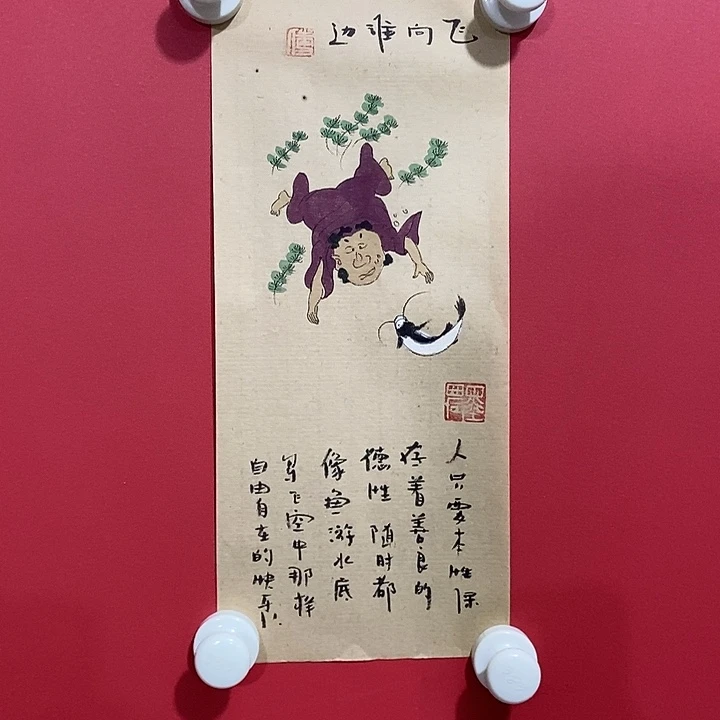 飞向谁边
人只要本性保
存着善良的
德性随时都
像鱼游水底
鸟飞空中那样
自由自在的快乐